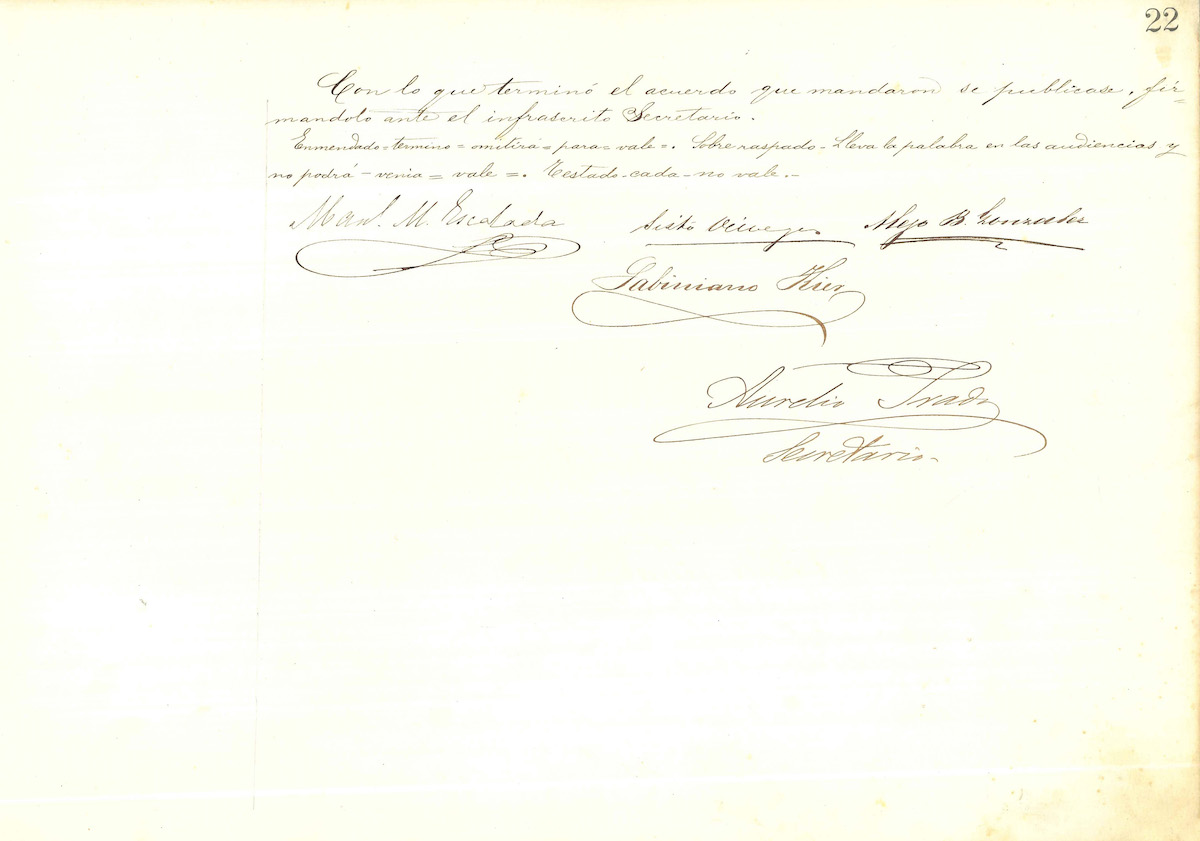 22
Con lo que terminó el acuerdo que mandaron se publicase, fir=
mandolo ante el infrascrito Secretario.
Enmendado=termino=omitirá=para=vale=. Sobre raspado-Lleva la palabra en las audiencias y
no podrá-venia=vale=. Testado-cada-no vale.-
Manl. M. Escalada Sisto Alejo B. Gonzalez
Gabiniano
Aurelio Prado
Secretario-